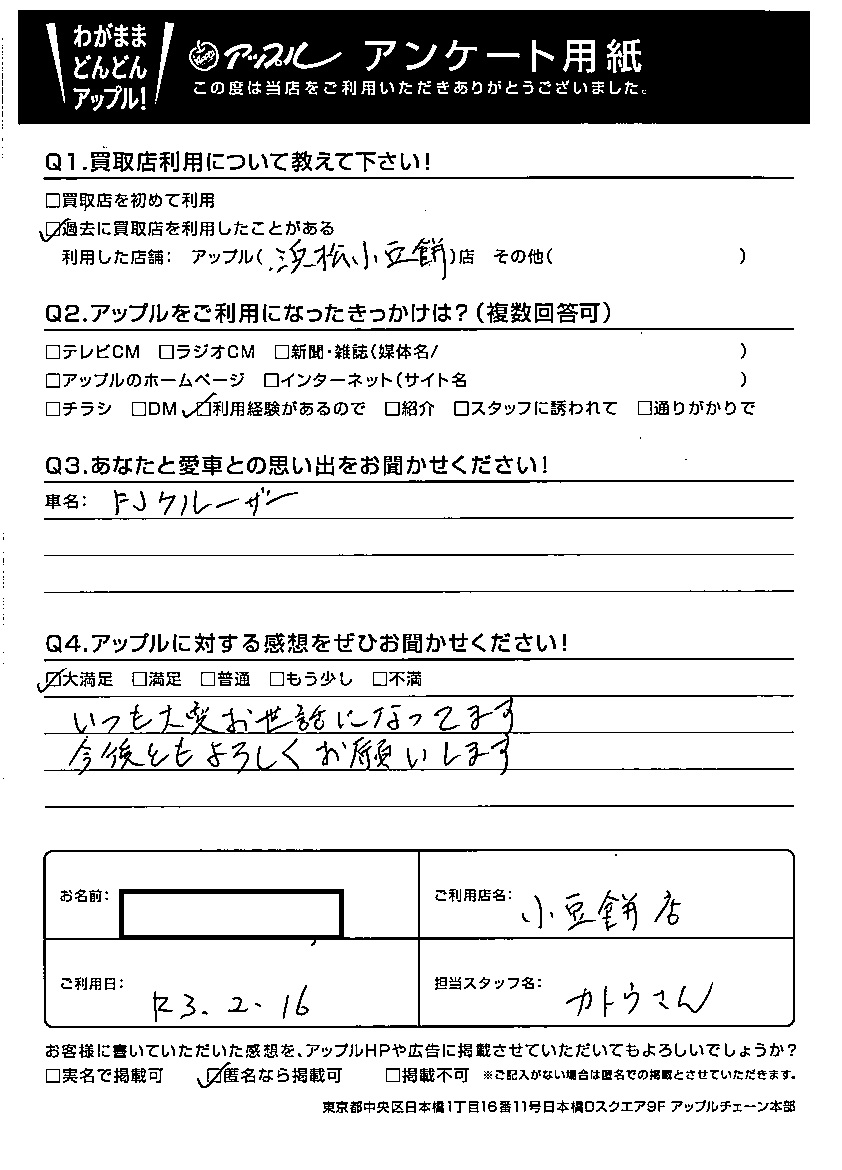 わがまま
どんどん
アップル!
アップル アンケート用紙
この度は当店をご利用いただきありがとうございました。
Q1.買取店利用について教えて下さい!
□買取店を初めて利用
☑過去に買取店を利用したことがある
利用した店舗: アップル(浜松小豆餅)店 その他( )
Q2.アップルをご利用になったきっかけは?(複数回答可)
□テレビCM □ラジオCM □新聞・雑誌(媒体名/ )
□アップルのホームページ □インターネット(サイト名 )
□チラシ □DM ☑利用経験があるので □紹介 □スタッフに誘われて □通りがかりで
Q3.あなたと愛車との思い出をお聞かせください!
車名: FJクルーザー
Q4.アップルに対する感想をぜひお聞かせください!
☑大満足 □満足 □普通 □もう少し □不満
いつも大変お世話になってます
今後ともよろしくお願いします
お名前:
ご利用店名: 小豆餅店
ご利用日: R3.2.16
担当スタッフ名: カトウさん
お客様に書いていただいた感想を、アップルHPや広告に掲載させていただいてもよろしいでしょうか?
□実名で掲載可 ☑匿名なら掲載可 □掲載不可 ※ご記入がない場合は匿名での掲載とさせていただきます。
東京都中央区日本橋1丁目16番11号日本橋Dスクエア9F アップルチェーン本部